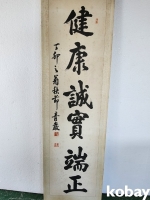 健康誠實端正
丁卯之菊秋節 青巖
kobay